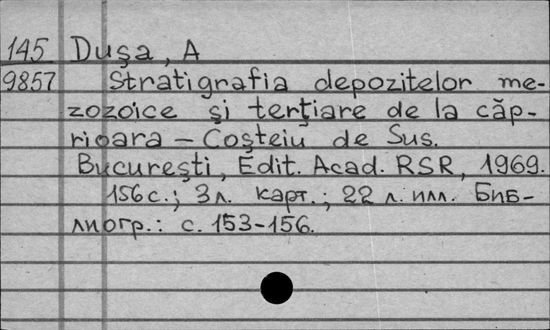 145 Duşa, A
9857 Stratigrafia depozitelor me-
zozoice şi terţiare de la căp-
rioara – Coşteiu de Sus.
Bucureşti, Edit. Acad. RSR, 1969.
156 с.; 3 л. карт.; 22 л. илл. Биб-
лиогр.: с. 153-156.